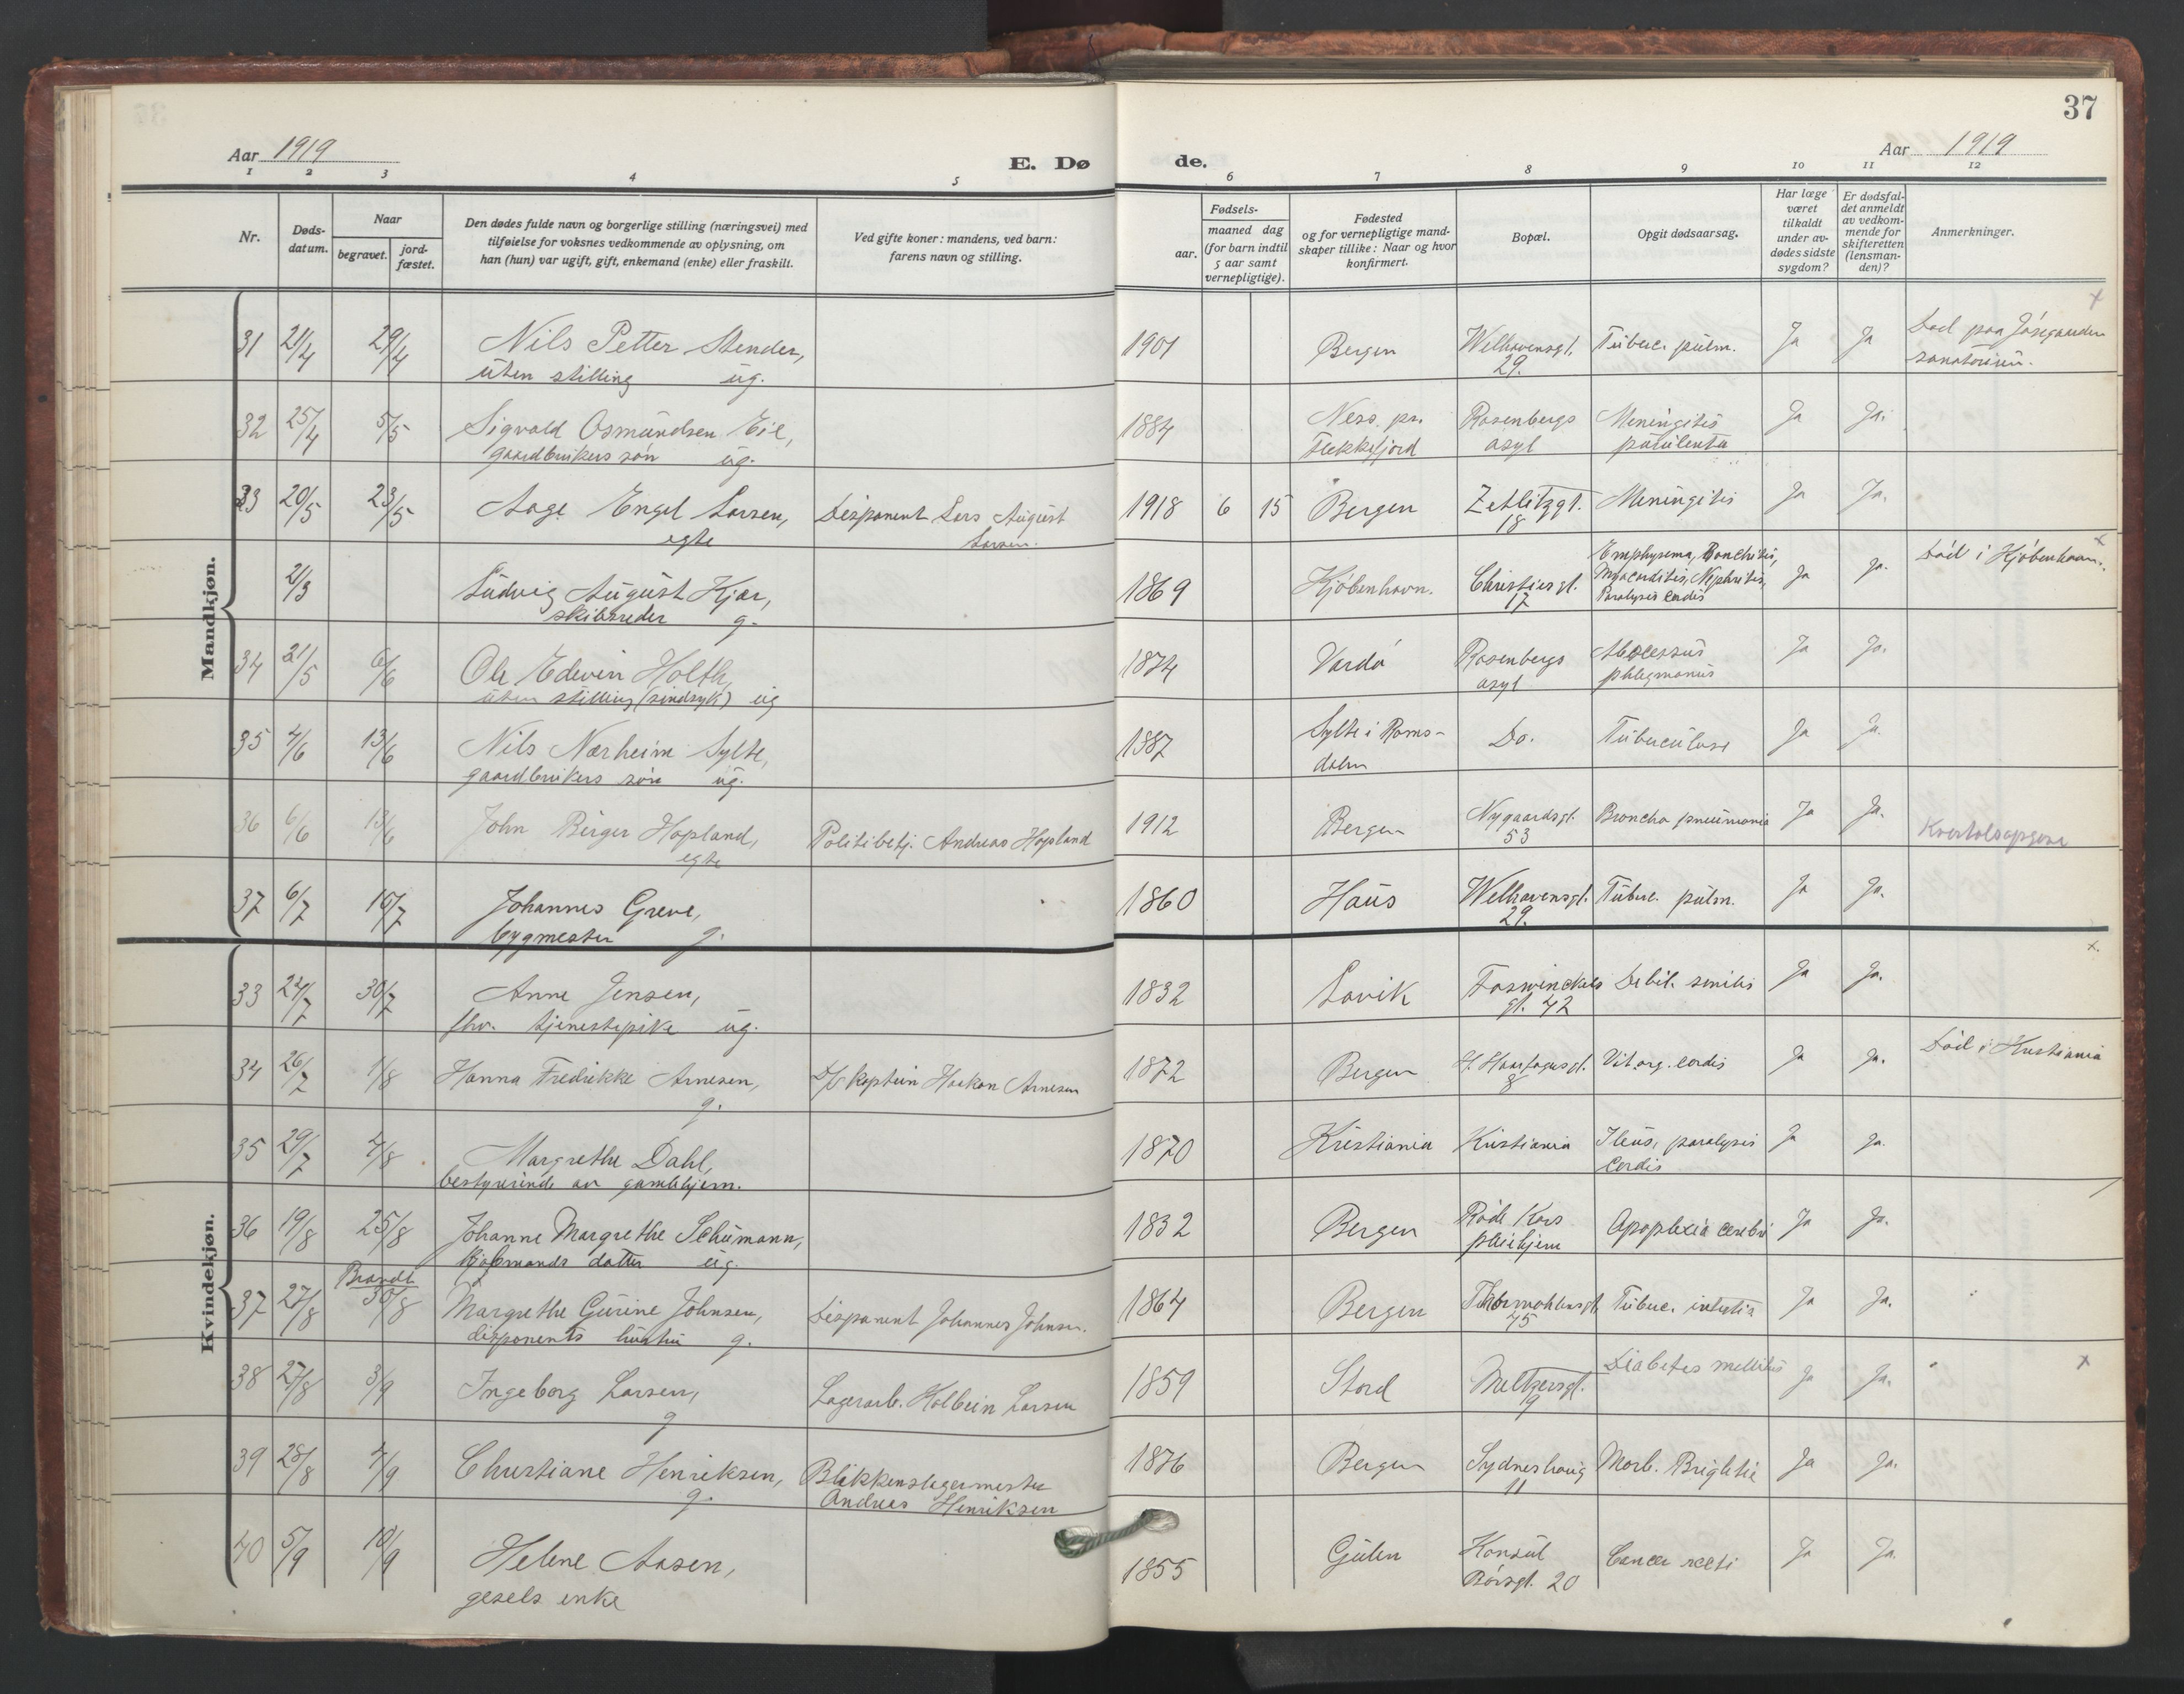 37
Aar 1919
E. Dø
de.
Aar 1919
1 2 3 4 5 6 7 8 9 10 11 12
Nr.
Døds-
datum.
Naar
begravet.
jord-
fæstet.
Den dødes fulde navn og borgerlige stilling (næringsvei) med
tilføielse for voksnes vedkommende av oplysning, om
han (hun) var ugift, gift, enkemand (enke) eller fraskilt.
Ved gifte koner: mandens, ved barn:
farens navn og stilling.
Fødsels-
aar.
maaned dag
(for barn indtil
5 aar samt
vernepligtige).
Fødested
og for vernepligtige mand-
skaper tillike: Naar og hvor
konfirmert.
Bopæl.
Opgit dødsaarsag.
Har læge
været
tilkaldt
under av-
dødes sidste
sygdom?
Er dødsfal-
det anmeldt
av vedkom-
mende for
skifteretten
(lensman-
den)?
Anmerkninger.
Mandkjøn.
31 21/4 29/4 Nils Petter Stender, 1901 Bergen Welhavensgt. Tuberc. pulm. Ja Ja Død paa
uten stilling ug. 29. sanatorium.
32 25/4 5/5 Sigvald Osmundsen Eie, 1884 Ness pr. Rosenbergs Meningitis Ja Ja.
gaardbrukers søn ug. Flekkefjord asyl purulenta
33 20/5 23/5 Aage Engel Larsen, Disponent Lars August 1918 6 15 Bergen Zetlitzgt. Meningitis Ja Ja.
egte Larsen. 18
21/3 Ludvig August Kjær, 1869 Kjøbenhavn. Christiesgt. Emphysema, Bronchitis, Ja Ja. Død i Kjøbenhavn.
skibsreder g. 17 Myocarditis, Nephritis,
Paralysis cordis
34 21/5 6/6 Ole Edevin Holth, 1874 Vardø Rosenbergs Abscessus Ja Ja.
uten stilling (sindsyk) ug asyl phlegmonus
35 4/6 13/6 Nils Nærheim Sylte, 1887 Sylte i Roms- Do. Tuberculose Ja Ja.
gaardbrukers søn ug. dalen
36 6/6 13/6 John Birger Hopland, Politibetj. Andreas Hopland 1912 Bergen Nygaardsgt. Broncho pneumonia Ja Ja.
egte 53 Kvartalsopgave
37 6/7 10/7 Johannes Greve, 1860 Haus Welhavensgt. Tuberc. pulm. Ja Ja.
bygmester g. 29.
Kvindekjøn.
33 24/7 30/7 Anne Jensen, 1832 Lavik Foswinckels Debil. senilis Ja Ja.
fhv. tjenestepike ug. gt. 42
34 26/7 1/8 Hanna Fredrikke Arnesen, D/S kaptein Haakon Arnesen 1872 Bergen H. Haarfagresgt. Vit. org. cordis Ja Ja. Død i Kristiania
g. 8
35 29/7 4/8 Margrethe Dahl, 1870 Kristiania Kristiania Ileus, paralysis Ja Ja.
bestyrerinde av gamlehjem. cordis
36 19/8 25/8 Johanne Margrethe Schumann, 1832 Bergen Røde Kors Apoplexia cerebri Ja Ja.
kjøbmands datter ug. pleiehjem
Brændt
37 27/8 30/8 Margrethe Gurine Johnsen, Disponent Johannes Johnsen. 1864 Bergen Thormøhlensgt. Tuberc. Ja Ja.
disponents hustru g. 45
38 27/8 3/9 Ingeborg Larsen, Lagerarb. Holbein Larsen 1859 Stord Meltzersgt. Diabetes mellitus Ja Ja.
g 19
39 28/8 4/9 Christiane Henriksen, Blikkenslagermester 1876 Bergen Sydneshaug Morb. Brightii Ja Ja.
g. Andreas Henriksen 11
40 5/9 10/9 Helene Aasen, 1855 Gulen Konsul Cancer recti Ja Ja.
gesels enke Børsgt. 20